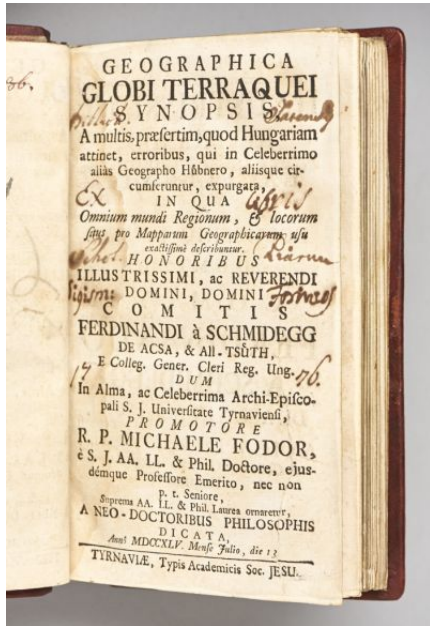 86.
GEOGRAPHICA
GLOBI TERRAQUEI
SYNOPSIS
A multis, præsertim, quod Hungariam
attinet, erroribus, qui in Celeberrimo
aliàs Geographo Hůbnero, aliisque cir-
cumferuntur, expurgata,
Ex
IN QUA
Libris
Omnium mundi Regionum, & locorum
situs pro Mapparum Geographicarum usu
exactissimè describuntur.
HONORIBUS
ILLUSTRISSIMI, ac REVERENDI
DOMINI, DOMINI
COMITIS
FERDINANDI à SCHMIDEGG
DE ACSA, & All-TSŮTH,
E Colleg. Gener. Cleri Reg. Ung.
17 DUM 76.
In Alma, ac Celeberrima Archi-Episco-
pali S. J. Universitate Tyrnaviensi,
PROMOTORE
R. P. MICHAELE FODOR,
è S. J. AA. LL. & Phil. Doctore, ejus-
démque Professore Emerito, nec non
p. t. Seniore,
Suprema AA. LL. & Phil. Laurea ornaretur,
A NEO-DOCTORIBUS PHILOSOPHIS
DICATA,
Annô MDCCXLV. Mense Julio, die 13
TYRNAVIÆ, Typis Academicis Soc. JESU.